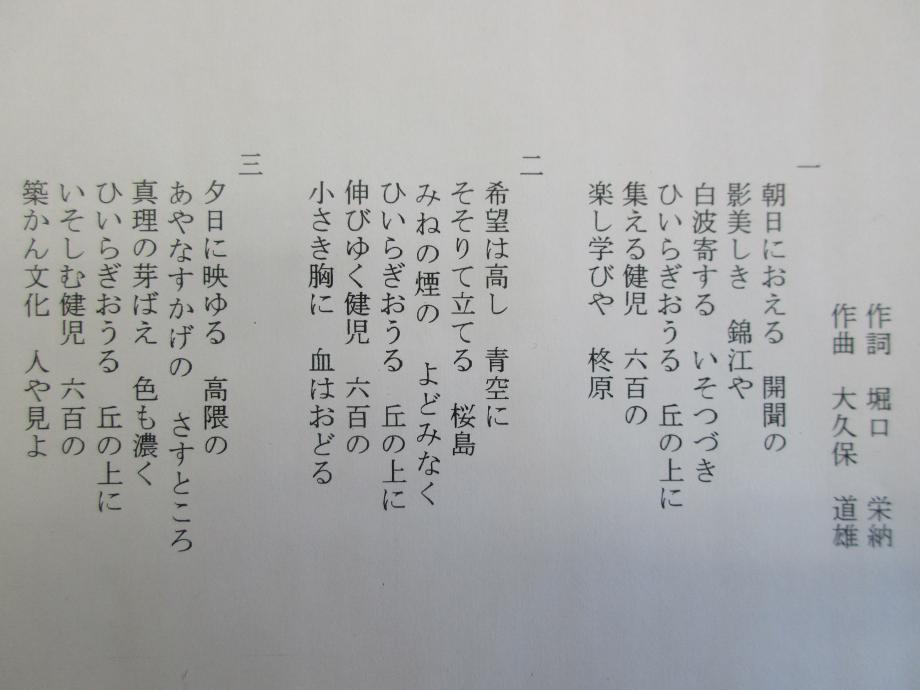 作詞　堀口　栄納
作曲　大久保　道雄
一
朝日におえる　開聞の
影美しき　錦江や
白波寄する　いそつづき
ひいらぎおうる　丘の上に
集える健児　六百の
楽し学びや　柊原
二
希望は高し　青空に
そそりて立てる　桜島
みねの煙の　よどみなく
ひいらぎおうる　丘の上に
伸びゆく健児　六百の
小さき胸に　血はおどる
三
夕日に映ゆる　高隈の
あやなすかげの　さすところ
真理の芽ばえ　色も濃く
ひいらぎおうる　丘の上に
いそしむ健児　六百の
築かん文化　人や見よ